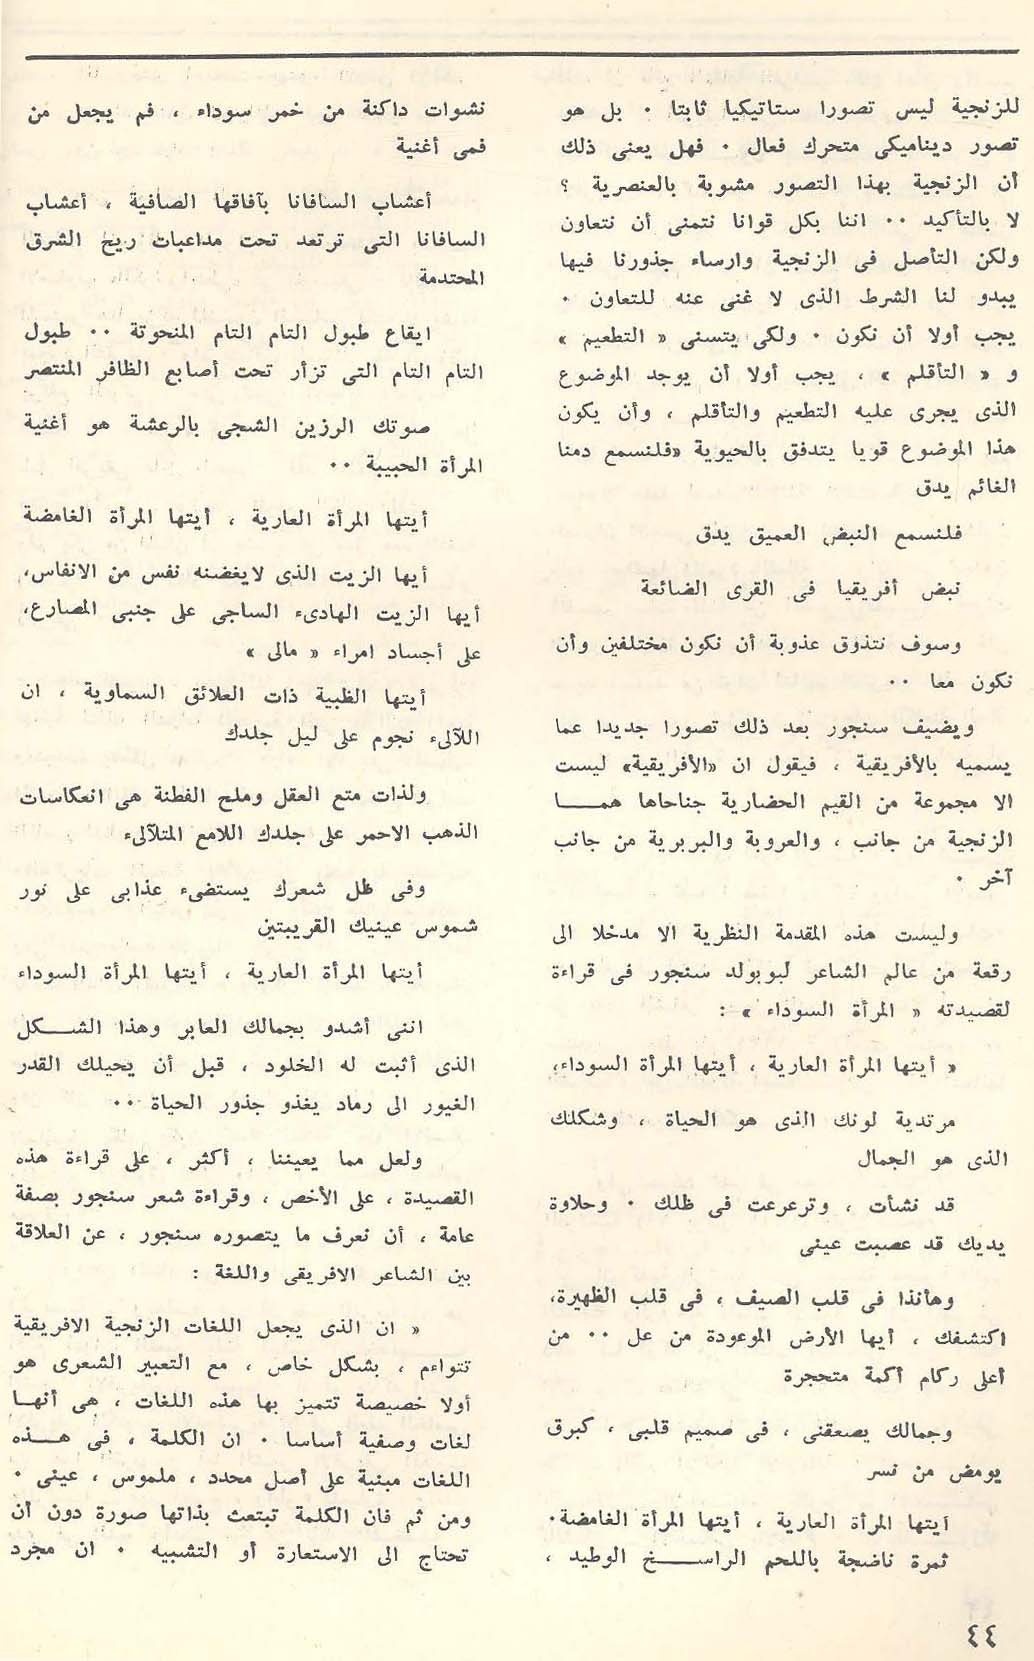 للزنجية ليس تصورا ستاتيكيا ثابتا ٠ بل هو
تصور ديناميكى متحرك فعال ٠ فهل يعنى ذلك
أن الزنجية بهذا التصور مشوبة بالعنصرية ؟
لا بالتأكيد ٠٠ اننا بكل قوانا نتمنى أن نتعاون
ولكن التأصل فى الزنجية وارساء جذورنا فيها
يبدو لنا الشرط الذى لا غنى عنه للتعاون ٠
يجب أولا أن نكون ٠ ولكى يتسنى « التطعيم »
و « التأقلم » ، يجب أولا أن يوجد الموضوع
الذى يجرى عليه التطعيم والتأقلم ، وأن يكون
هذا الموضوع قويا يتدفق بالحيوية «فلنسمع دمنا
الغائم يدق
فلنسمع النبض العميق يدق
نبض أفريقيا فى القرى الضائعة
وسوف نتذوق عذوبة أن نكون مختلفين وأن
نكون معا ٠٠
ويضيف سنجور بعد ذلك تصورا جديدا عما
يسميه بالأفريقية ، فيقول ان «الأفريقية» ليست
الا مجموعة من القيم الحضارية جناحاها همــا
الزنجية من جانب ، والعروبة والبربرية من جانب
آخر ٠
وليست هذه المقدمة النظرية الا مدخلا الى
رقعة من عالم الشاعر ليوبولد سنجور فى قراءة
لقصيدته « المرأة السوداء » :
« أيتها المرأة العارية ، أيتها المرأة السوداء،
مرتدية لونك الذى هو الحياة ، وشكلك
الذى هو الجمال
قد نشأت ، وترعرعت فى ظلك ٠ وحلاوة
يديك قد عصبت عينى
وهأنذا فى قلب الصيف ، فى قلب الظهيرة،
اكتشفك ، أيها الأرض الموعودة من عل ٠٠ من
أعلى ركام أكمة متحجرة
وجمالك يصعقنى ، فى صميم قلبى ، كبرق
يومض من نسر
أيتها المرأة العارية ، أيتها المرأة الغامضة٠
ثمرة ناضجة باللحم الراســـخ الوطيد ،
نشوات داكنة من خمر سوداء ، فم يجعل من
فمى أغنية
أعشاب السافانا بآفاقها الصافية ، أعشاب
السافانا التى ترتعد تحت مداعبات ريح الشرق
المحتدمة
ايقاع طبول التام التام المنحوتة ٠٠ طبول
التام التام التى تزأر تحت أصابع الظافر المنتصر
صوتك الرزين الشجى بالرعشة هو أغنية
المرأة الحبيبة ٠٠
أيتها المرأة العارية ، أيتها المرأة الغامضة
أيها الزيت الذى لايغضنه نفس من الانفاس،
أيها الزيت الهادىء الساجى على جنبى المصارع،
على أجساد امراء « مالى »
أيتها الظبية ذات العلائق السماوية ، ان
اللآلىء نجوم على ليل جلدك
ولذات متع العقل وملح الفطنة هى انعكاسات
الذهب الاحمر على جلدك اللامع المتلآلىء
وفى ظل شعرك يستضىء عذابى على نور
شموس عينيك القريبتين
أيتها المرأة العارية ، أيتها المرأة السوداء
اننى أشدو بجمالك العابر وهذا الشــكل
الذى أثبت له الخلود ، قبل أن يحيلك القدر
الغيور الى رماد يغذو جذور الحياة ٠٠
ولعل مما يعيننا ، أكثر ، على قراءة هذه
القصيدة ، على الأخص ، وقراءة شعر سنجور بصفة
عامة ، أن نعرف ما يتصوره سنجور ، عن العلاقة
بين الشاعر الافريقى واللغة :
« ان الذى يجعل اللغات الزنجية الافريقية
تتواءم ، بشكل خاص ، مع التعبير الشعرى هو
أولا خصيصة تتميز بها هذه اللغات ، هى أنهــا
لغات وصفية أساسا ٠ ان الكلمة ، فى هــذه
اللغات مبنية على أصل محدد ، ملموس ، عينى ٠
ومن ثم فان الكلمة تبتعث بذاتها صورة دون أن
تحتاج الى الاستعارة أو التشبيه ٠ ان مجرد
٤٤